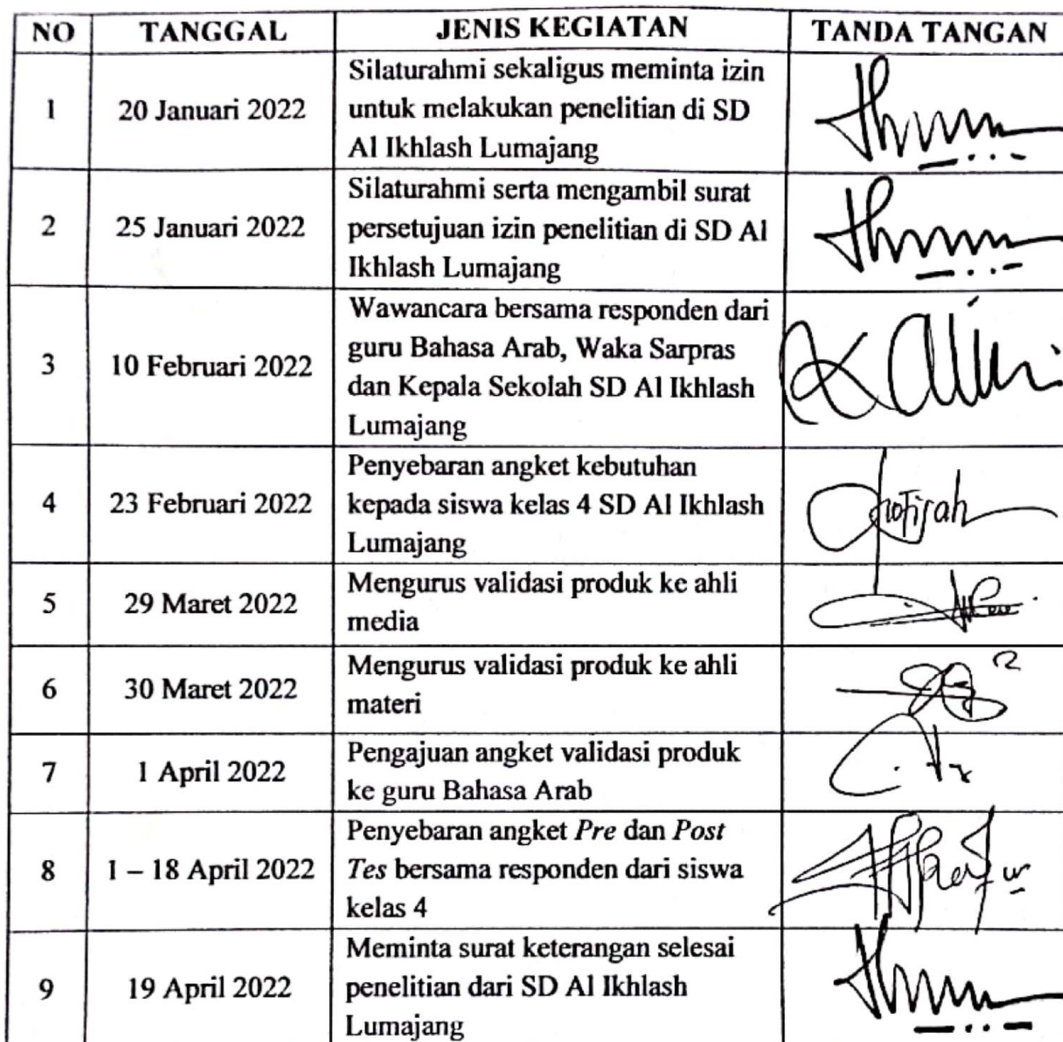 NO TANGGAL JENIS KEGIATAN TANDA TANGAN
1 20 Januari 2022 Silaturahmi sekaligus meminta izin
untuk melakukan penelitian di SD
Al Ikhlash Lumajang
2 25 Januari 2022 Silaturahmi serta mengambil surat
persetujuan izin penelitian di SD Al
Ikhlash Lumajang
3 10 Februari 2022 Wawancara bersama responden dari
guru Bahasa Arab, Waka Sarpras
dan Kepala Sekolah SD Al Ikhlash
Lumajang
4 23 Februari 2022 Penyebaran angket kebutuhan
kepada siswa kelas 4 SD Al Ikhlash
Lumajang
5 29 Maret 2022 Mengurus validasi produk ke ahli
media
6 30 Maret 2022 Mengurus validasi produk ke ahli
materi
7 1 April 2022 Pengajuan angket validasi produk
ke guru Bahasa Arab
8 1 – 18 April 2022 Penyebaran angket Pre dan Post
Tes bersama responden dari siswa
kelas 4
9 19 April 2022 Meminta surat keterangan selesai
penelitian dari SD Al Ikhlash
Lumajang